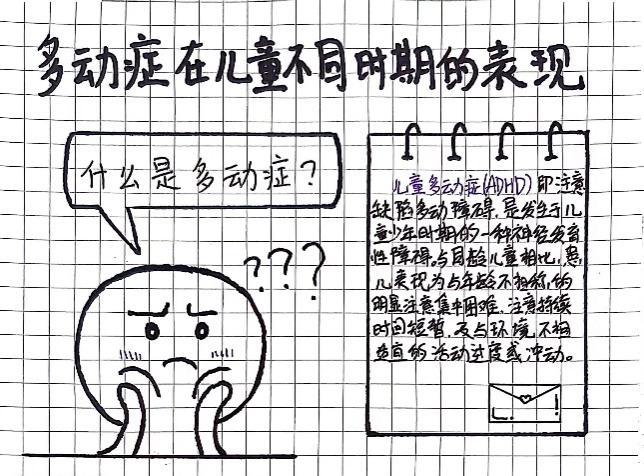 多动症在儿童不同时期的表现
什么是多动症？
???
儿童多动症(ADHD)即注意
缺陷多动障碍，是发生于儿
童少年时期的一种神经发育
性障碍，与同龄儿童相比，患
儿表现为与年龄不相称的
明显注意集中困难，注意持续
时间短暂，及与环境不相
适宜的活动过度或冲动。